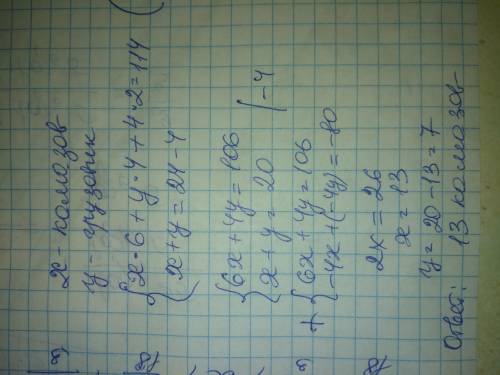 x - камазов
y - грузовик
{ x·6 + y·4 + 4·2 = 114
{ x + y = 24 - 4
{ 6x + 4y = 106
{ x + y = 20 | -4
+ { 6x + 4y = 106
{ -4x + (-4y) = -80
2x = 26
x = 13
y = 20 - 13 = 7
Ответ: 13 камазов